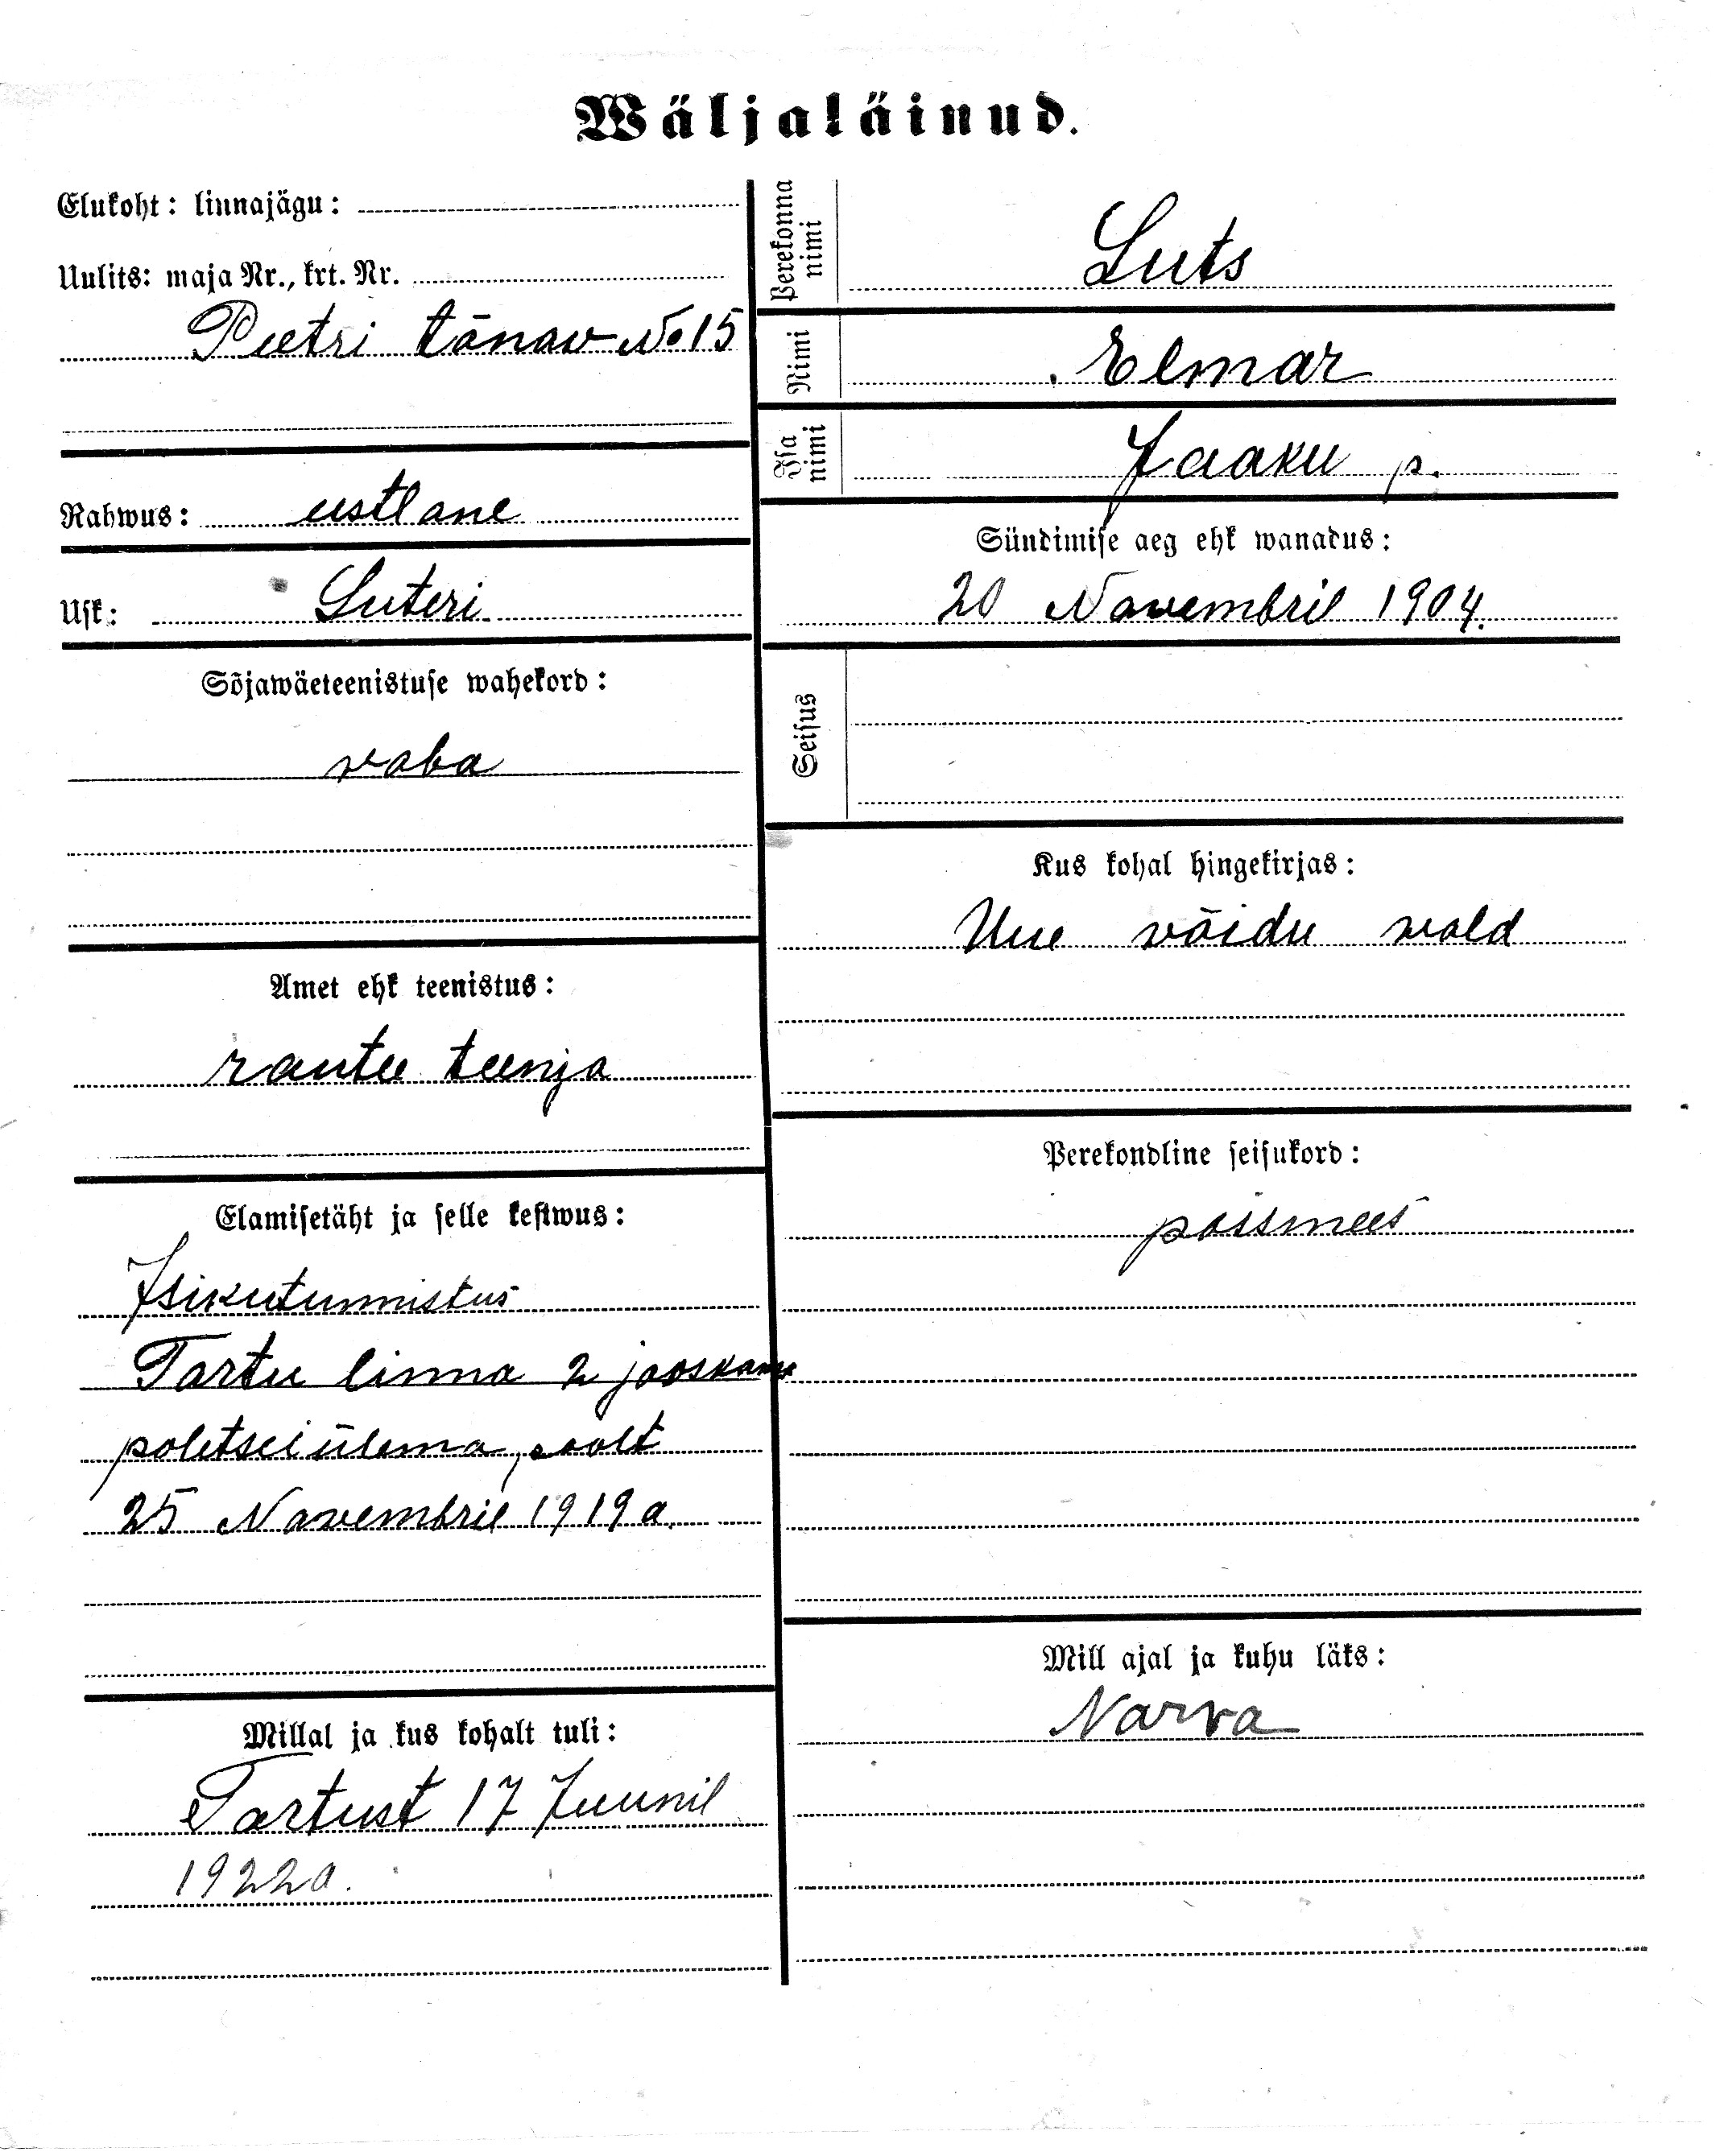 Wäljaläinud.
Elukoht: linnajägu:
Uulits: maja Nr., krt. Nr.
Peetri tänaw No 15
Rahwus: eestlane
Usk: Luteri
Sõjawäeteenistuse wahekord:
vaba
Amet ehk teenistus:
rautee teenja
Elamisetäht ja selle kestwus:
Isikutunnistus
Tartu linna 2 jaoskonna
politseiülema poolt
25 Novembril 1919 a.
Millal ja kus kohalt tuli:
Tartust 17 Juunil
1922 a.
Perekonna nimi
Luts
Nimi
Elmar
Isa nimi
Jaaku p.
Sündimise aeg ehk wanadus:
20 Novembril 1904.
Seisus
Kus kohal hingekirjas:
Uue võidu vald
Perekondline seisukord:
poissmees
Mill ajal ja kuhu läks:
Narva